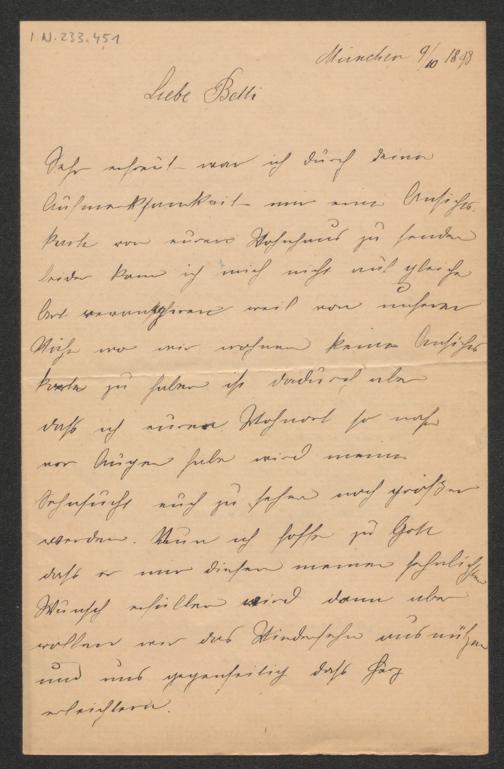 I.N. 233.451
München 9/10 1898
Liebe Betti
Sehr erfreut war ich durch deine
Aufmerksamkeit mir eine Ansichts-
karte von eurem Wohnhaus zu senden
leider kann ich mich nicht auf gleiche
Art revanchiren weil von unserer
wo wir wohnen keine Ansichts
karte zu haben ist dadurch aber
daß ich euren Wohnort so nah
vor Augen habe wird meine
Sehnsucht euch zu sehen noch größer
werden. Nun ich hoffe zu Gott
daß er mir diesen meinen sehnlichsten
Wunsch erfüllen wird dann aber
wollen wir das Wiedersehn ausnützen
und uns gegenseitig daß Herz
erleichtern.